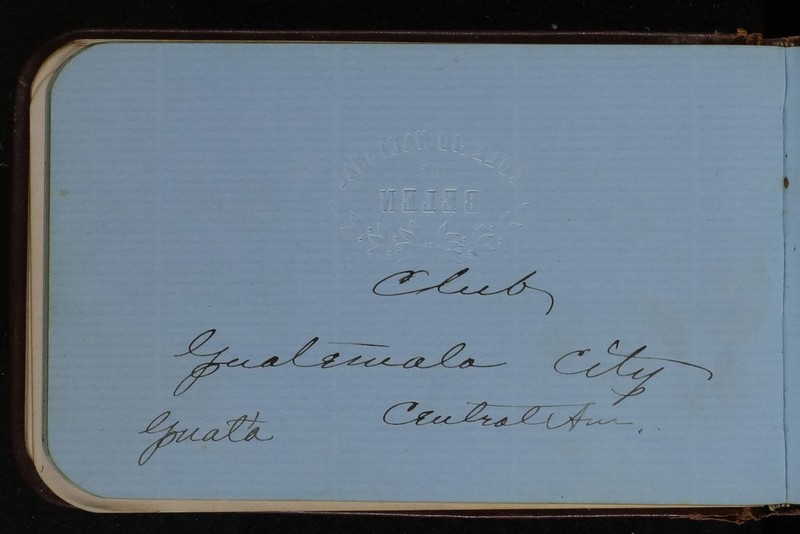 BELEN
Club
Guatemala City
Guat'a Central Am.